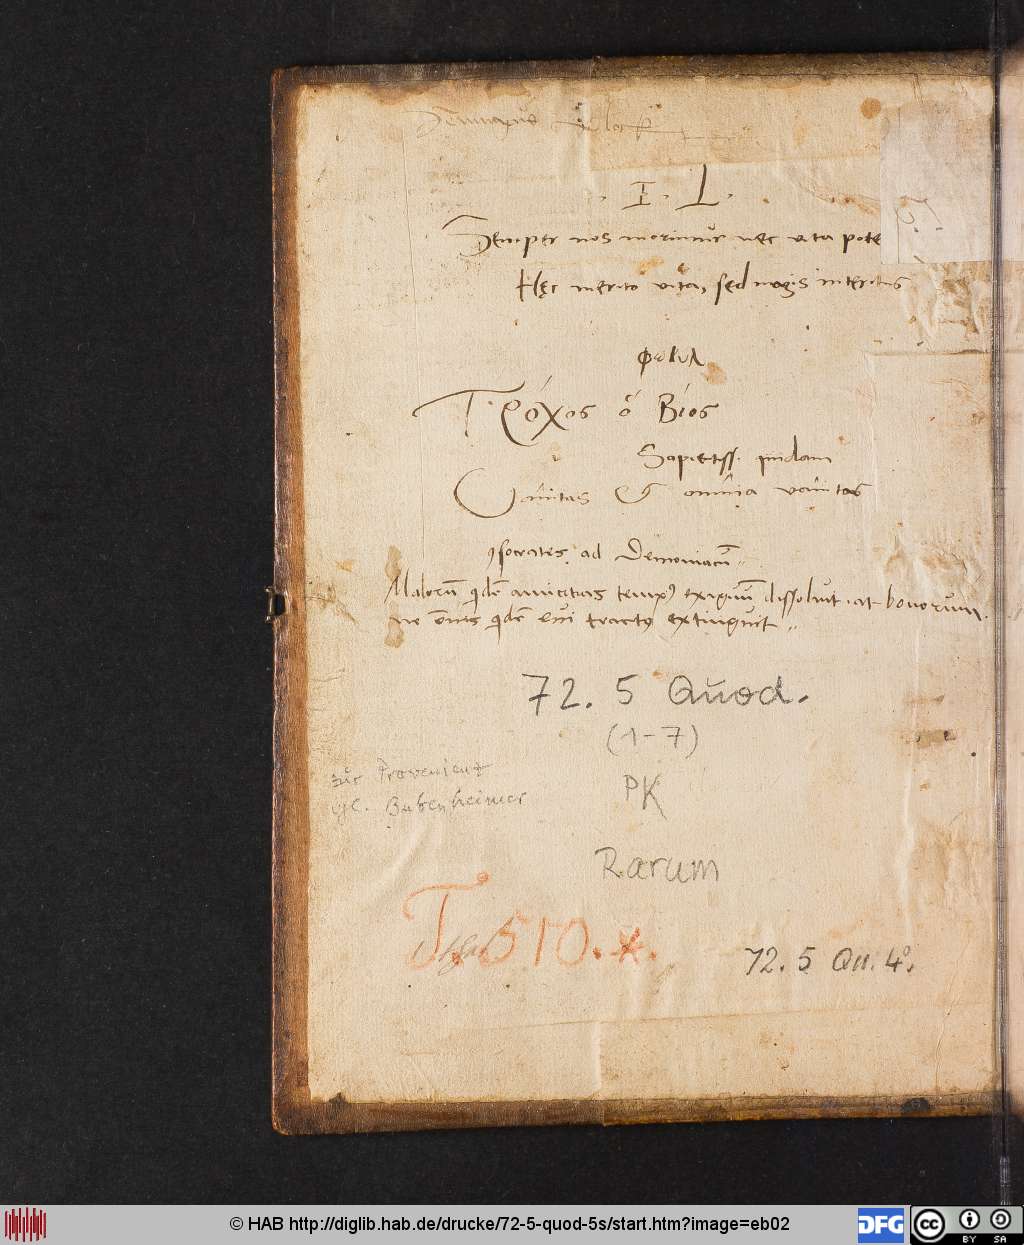 . I. L.
Semper nos morimur nec vita pote
Hęc merito vita, sed magis interitus
Τρόχος ὁ Βίος
Sapietiss. quidam
Vanitas & omnia vanitas
Isocrates ad Demoniacū
Malorū qdē amicitias temp9 exiguū dissoluit at bonorum
ne omēs qdē tract9 extinguit
72. 5 Quod.
(1-7)
zur Provenienz
vgl. Bubenheimer
PK
Rarum
T. 510. *.
72. 5 Qu. 4°.
© HAB http://diglib.hab.de/drucke/72-5-quod-5s/start.htm?image=eb02
DFG
cc BY SA